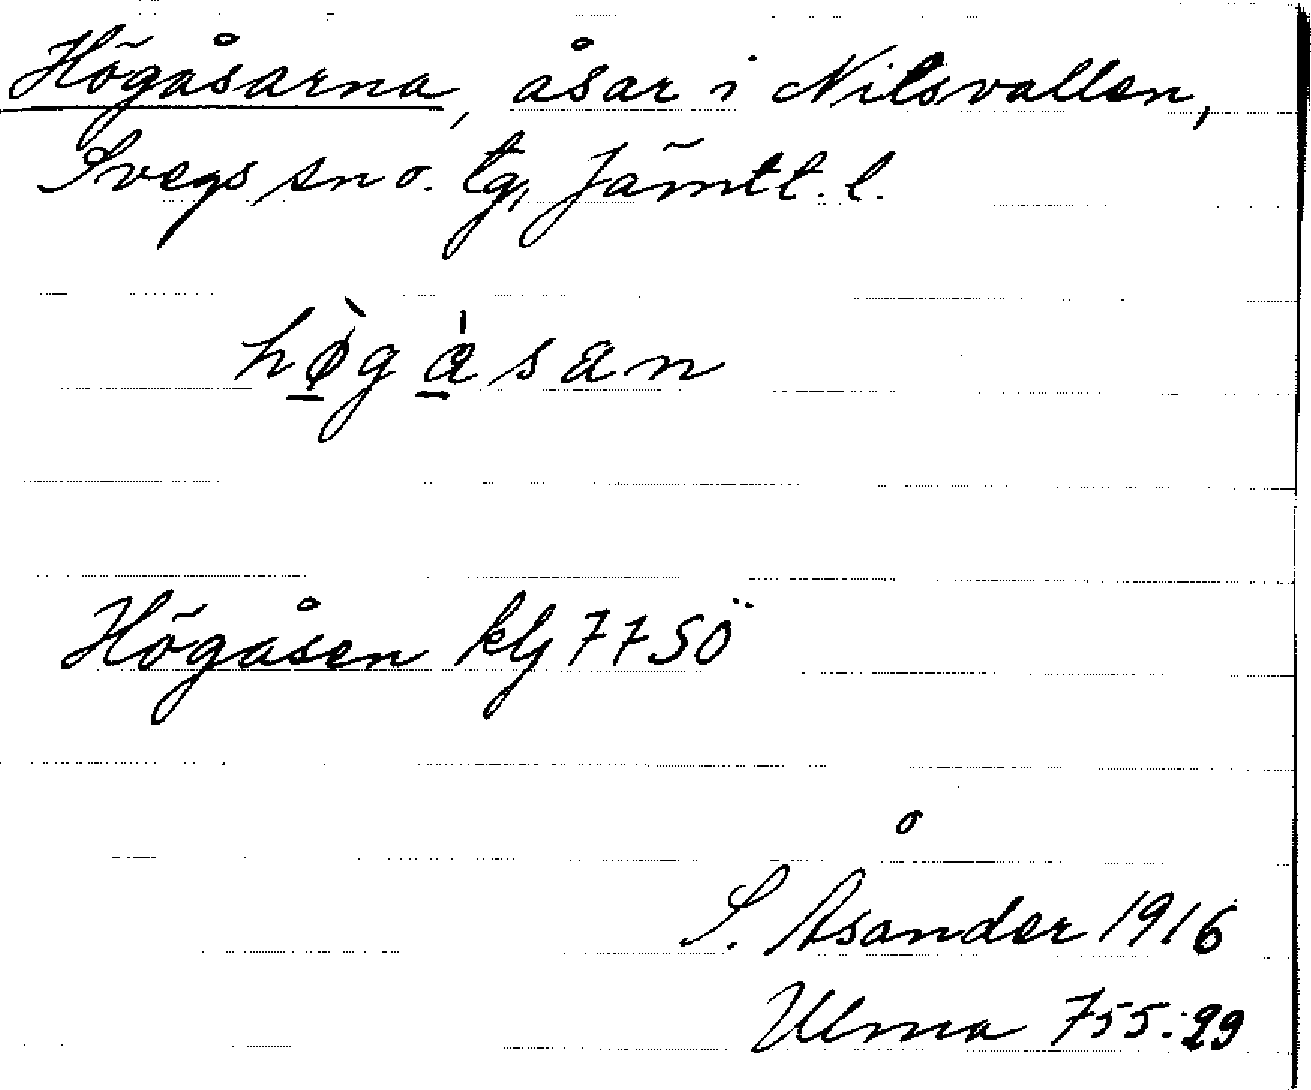 Högåsarna, åsar i Nilsvallen,
Svegs sn o. tg, Jämtt. l.
hø̀gásan
Högåsen kbl 77SÖ
S. Åsander 1916
Ulma 755:29